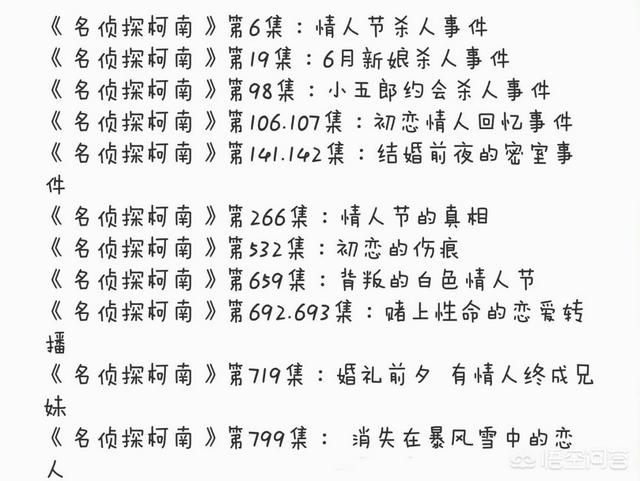 《名侦探柯南》第6集：情人节杀人事件
《名侦探柯南》第19集：6月新娘杀人事件
《名侦探柯南》第98集：小五郎约会杀人事件
《名侦探柯南》第106.107集：初恋情人回忆事件
《名侦探柯南》第141.142集：结婚前夜的密室事
件
《名侦探柯南》第266集：情人节的真相
《名侦探柯南》第532集：初恋的伤痕
《名侦探柯南》第659集：背叛的白色情人节
《名侦探柯南》第692.693集：赌上性命的恋爱转
播
《名侦探柯南》第719集：婚礼前夕 有情人终成兄
妹
《名侦探柯南》第799集： 消失在暴风雪中的恋
人
悟空问答